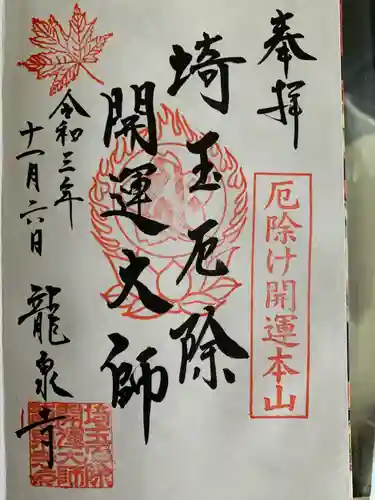 奉拝
厄除け開運本山
埼玉厄除
開運大師
令和三年
十一月六日
龍泉寺
埼玉厄除
開運大師